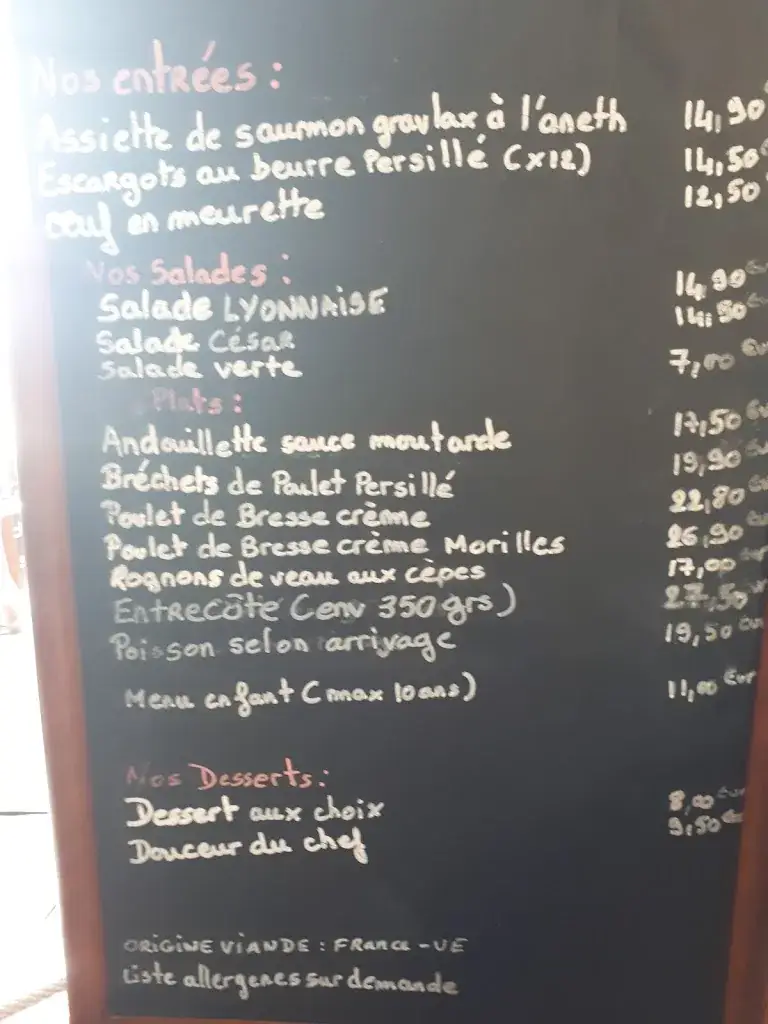 Nos entrées :
Assiette de saumon gravlax à l'aneth 14,90
Escargots au beurre Persillé (x12) 14,50
Oeuf en meurette 12,50
Nos Salades :
Salade LYONNAISE 14,90 Eur
Salade César 14,50 Eur
Salade verte 7,00 Eur
Plats :
Andouillette sauce moutarde 17,50 Eur
Bréchets de Poulet Persillé 19,90 Eur
Poulet de Bresse crème 22,80 Eur
Poulet de Bresse crème Morilles 26,90 Eur
Rognons de veau aux cèpes 17,00 Eur
Entrecôte (env 350 grs) 27,50 Eur
Poisson selon arrivage 19,50 Eur
Menu enfant (max 10 ans) 11,00 Eur
Nos Desserts :
Dessert aux choix 8,00 Eur
Douceur du chef 9,50 Eur
ORIGINE VIANDE : FRANCE - UE
Liste allergenes sur demande